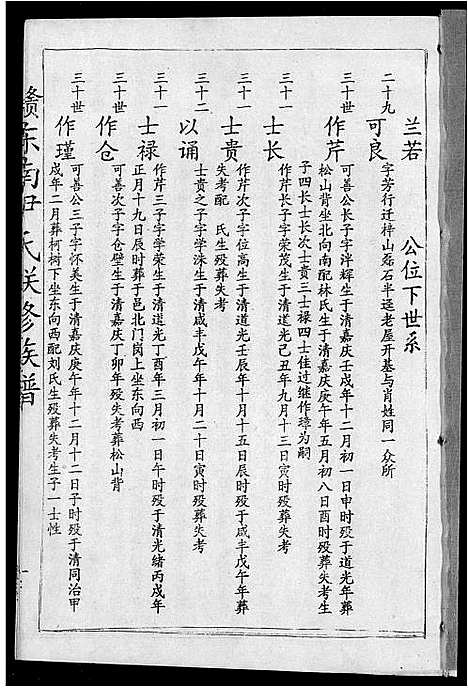 兰若
公位下世系
二十九
可良
字芳行迁梓山磊石半迳老屋开基与肖姓同一众所
三十世
作芹
可善公长子字泮辉生于清嘉庆壬戌年十二月初一日申时殁于道光年葬
松山背坐北向南配林氏生于清嘉庆庚午年五月初八日酉时殁葬失考生
子四长士长次士贵三士禄四士佳过继作璋为嗣
三十一
士长
作芹长子字荣茂生于清道光己丑年九月十三日寅时殁葬失考
三十一
士贵
作芹次子字位高生于清道光壬辰年十月十五日辰时殁于咸丰戊午年葬
失考配　氏生殁葬失考
三十二
以诵
士贵之子字学洙生于清咸丰戊午年十月二十日寅时殁葬失考
三十一
士禄
作芹三子字学荣生于清道光丁酉年三月初一日午时殁于清光绪丙戌年
正月十九日辰时葬于邑北门岗上坐东向西
三十世
作仓
可善次子字仓壁生于清嘉庆丁卯年殁失考葬松山背
三十世
作瑾
可善公三子字怀美生于清嘉庆庚午年十二月十二日子时殁于清同治甲
戌年二月葬柯树下坐东向西配刘氏生殁葬失考生子一士性
赣东南尹氏联修族谱